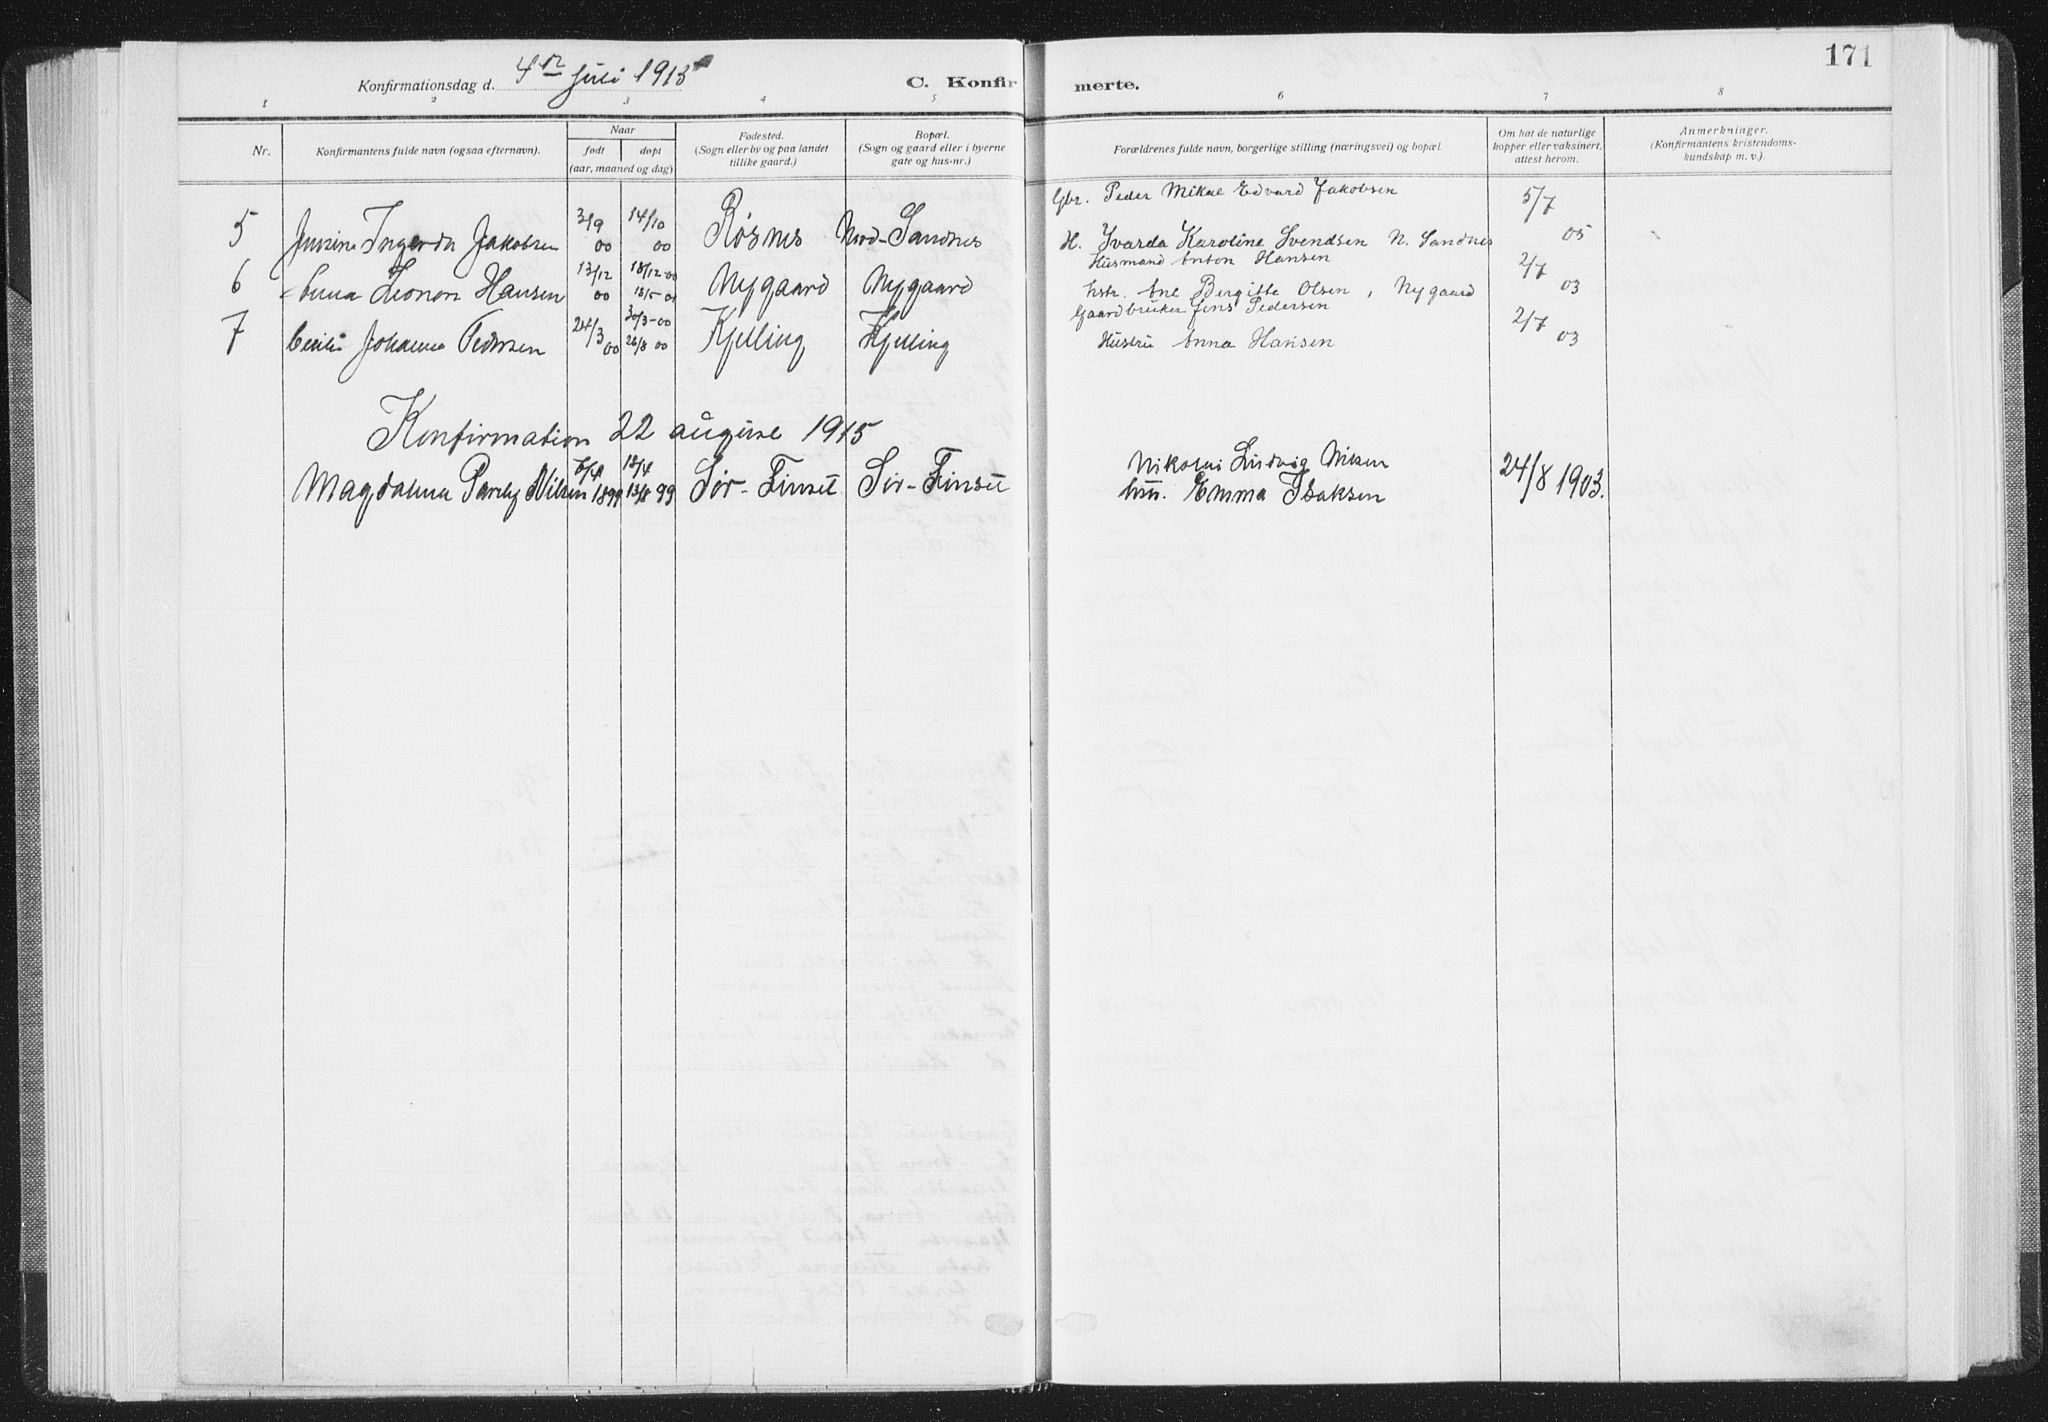 171
Konfirmationsdag d. 4de juli 1915
C. Konfirmerte.
1 2 3 4 5 6 7 8
Nr.
Konfirmantens fulde navn (ogsaa efternavn).
Naar
født døpt
(aar, maaned og dag)
Fødested.
(Sogn eller by og paa landet
tillike gaard.)
Bopæl.
(Sogn og gaard eller i byerne
gate og hus-nr.)
Forældrenes fulde navn, borgerlige stilling (næringsvei) og bopæl.
Om hat de naturlige
kopper eller vaksinert,
attest herom.
Anmerkninger.
(Konfirmantens kristendoms-
kundskap m. v.).
Gbr. Peder Mikal Edvard Jakobsen 5/7
5 Ingerda Jakobsen 3/9 00 14/10 00 Røsnes Nord-Sandnes H. Ivarda Karoline Svendsen N. Sandnes 05
Husmand Anton Hansen 2/7
6 Anna Leonora Hansen 13/12 00 18/12 00 Nygaard Nygaard hstr. Ane Bergitte Olsen, Nygaard 03
Gaardbruker Jens Pedersen 2/7
7 Cecilie Johanna Pedersen 24/3 00 30/3-00 26/8 00 Kjelling Kjelling Hustru Anna Hansen 03
Konfirmation 22 august 1915
Nikolai Ludvig Nilsen
Magdalena Parely Nilsen 1899 18/4 13/8 99 Sør-Finset Sør-Finset hu. Emma Isaksen 24/8 1903.